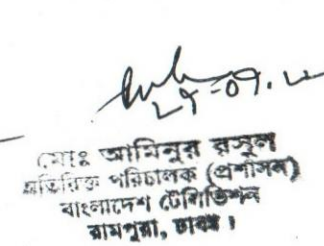 ২৭-০৭.২
মোঃ আমিনুর রসুল
অতিরিক্ত পরিচালক (প্রশাসন)
বাংলাদেশ টেলিভিশন
রামপুরা, ঢাকা।